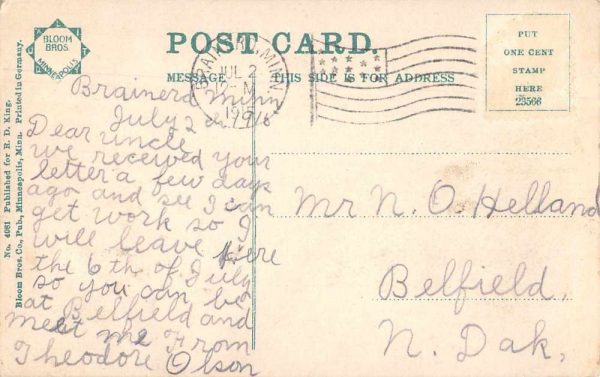 BLOOM BROS.
MINNEAPOLIS
No. 4081 Published for R. D. King.
Bloom Bros. Co., Pub., Minneapolis, Minn. Printed in Germany.
POST CARD.
MESSAGE
THIS SIDE IS FOR ADDRESS
BRAINERD, MINN.
JUL 2
12-M
1915
PUT
ONE CENT
STAMP
HERE
23566
Brainerd Minn
July 2
Dear uncle
we received your
letter a few days
ago and see I can
get work so I
will leave Here
the 6th of July
so you can be
at Belfield and
meet me From
Theodore Olson
Mr N. O. Helland
Belfield,
N. Dak,